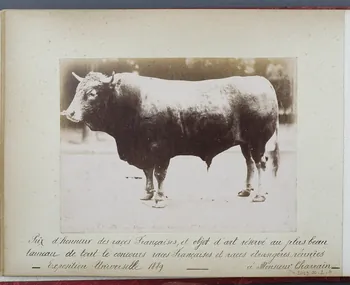 Prix d'honneur des races Françaises, et objet d'art réservé au plus beau
taureau de tout le concours races Françaises et races étrangères, réunies
— Exposition Universelle 1889 — à Monsieur